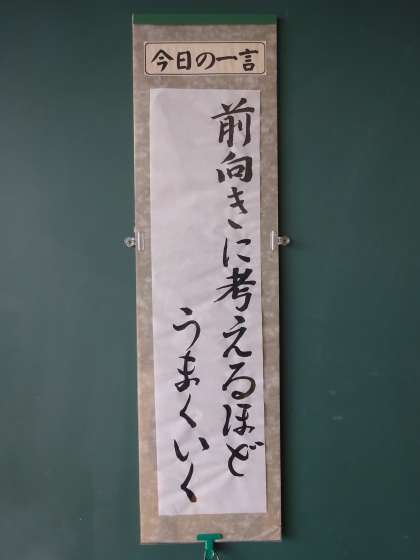 今日の一言
前向きに考えるほど
うまくいく